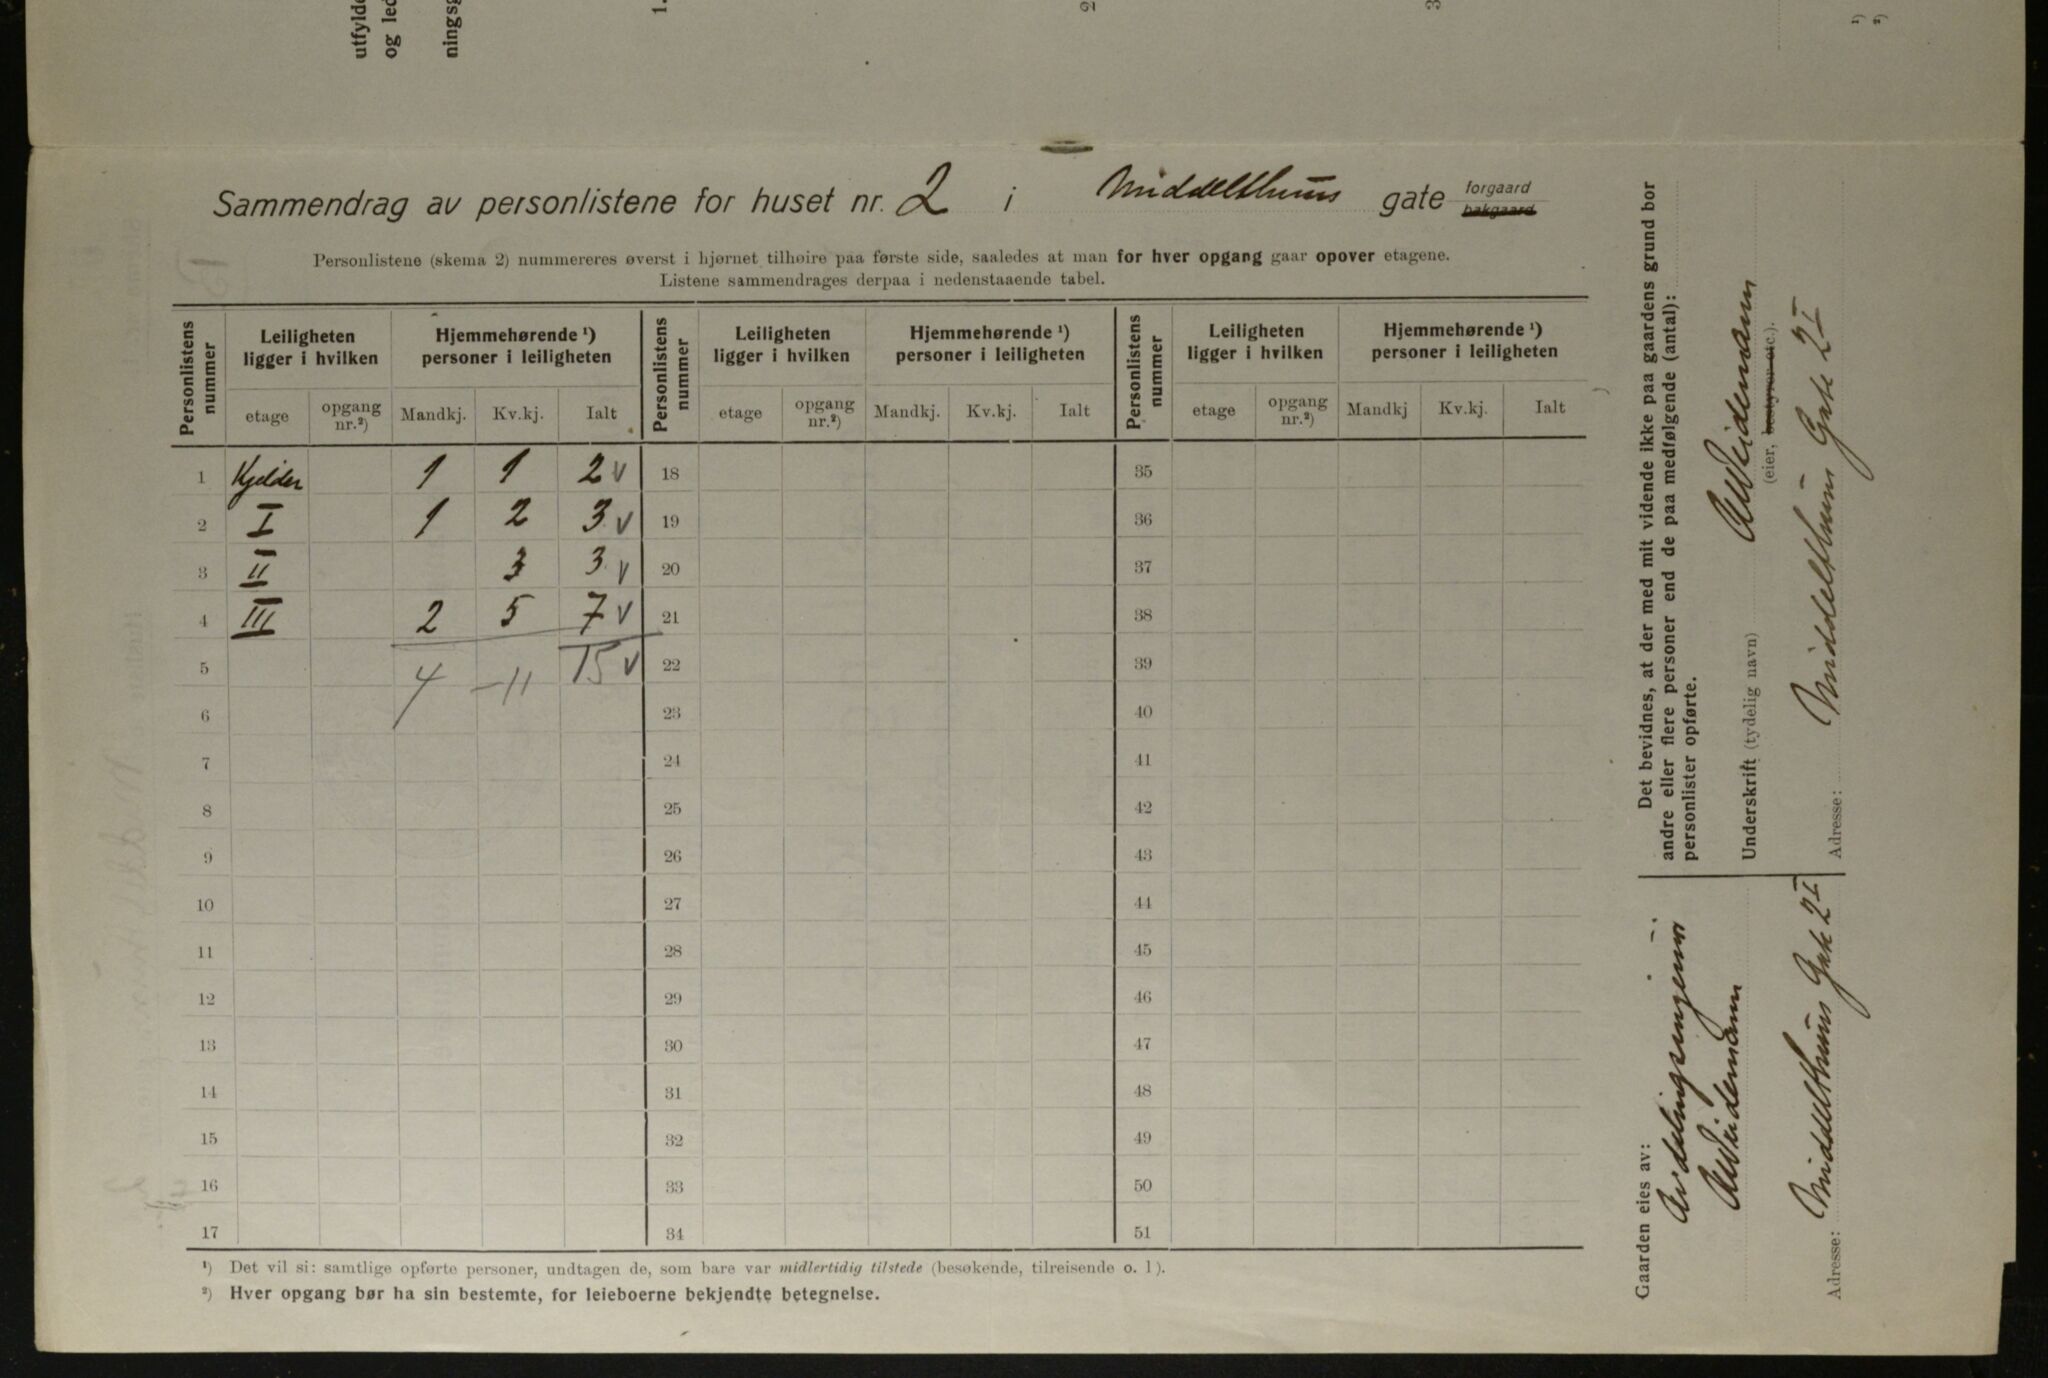 utfylde
og led
ningsg
1.
2
3
¹)
²)
Sammendrag av personlistene for huset nr. 2 i Middelthuns gate forgaard bakgaard
Personlistene (skema 2) nummereres øverst i hjørnet tilhøire paa første side, saaledes at man for hver opgang gaar opover etagene.
Listene sammendrages derpaa i nedenstaaende tabel.
Personlistens nummer Leiligheten ligger i hvilken Hjemmehørende ¹) personer i leiligheten Personlistens nummer Leiligheten ligger i hvilken Hjemmehørende ¹) personer i leiligheten Personlistens nummer Leiligheten ligger i hvilken Hjemmehørende ¹) personer i leiligheten
etage opgang nr.²) Mandkj. Kv.kj. Ialt etage opgang nr.²) Mandkj. Kv.kj. Ialt etage opgang nr.²) Mandkj Kv.kj. Ialt
1 Kjelder 1 1 2 v 18 35
2 I 1 2 3 v 19 36
3 II 3 3 v 20 37
4 III 2 5 7 v 21 38
5 4 – 11 15 v 22 39
6 23 40
7 24 41
8 25 42
9 26 43
10 27 44
11 28 45
12 29 46
13 30 47
14 31 48
15 32 49
16 33 50
17 34 51
¹) Det vil si: samtlige opførte personer, undtagen de, som bare var midlertidig tilstede (besøkende, tilreisende o. l).
²) Hver opgang bør ha sin bestemte, for leieboerne bekjendte betegnelse.
Det bevidnes, at der med mit vidende ikke paa gaardens grund bor
andre eller flere personer end de paa medfølgende (antal):
personlister opførte.
Underskrift (tydelig navn) AWeidemann
(eier, bestyrer etc.).
Adresse: Middelthuns Gate 2 I
Gaarden eies av:
Avdelingsingeniør
AWeidemann
Adresse: Middelthuns Gate 2 I